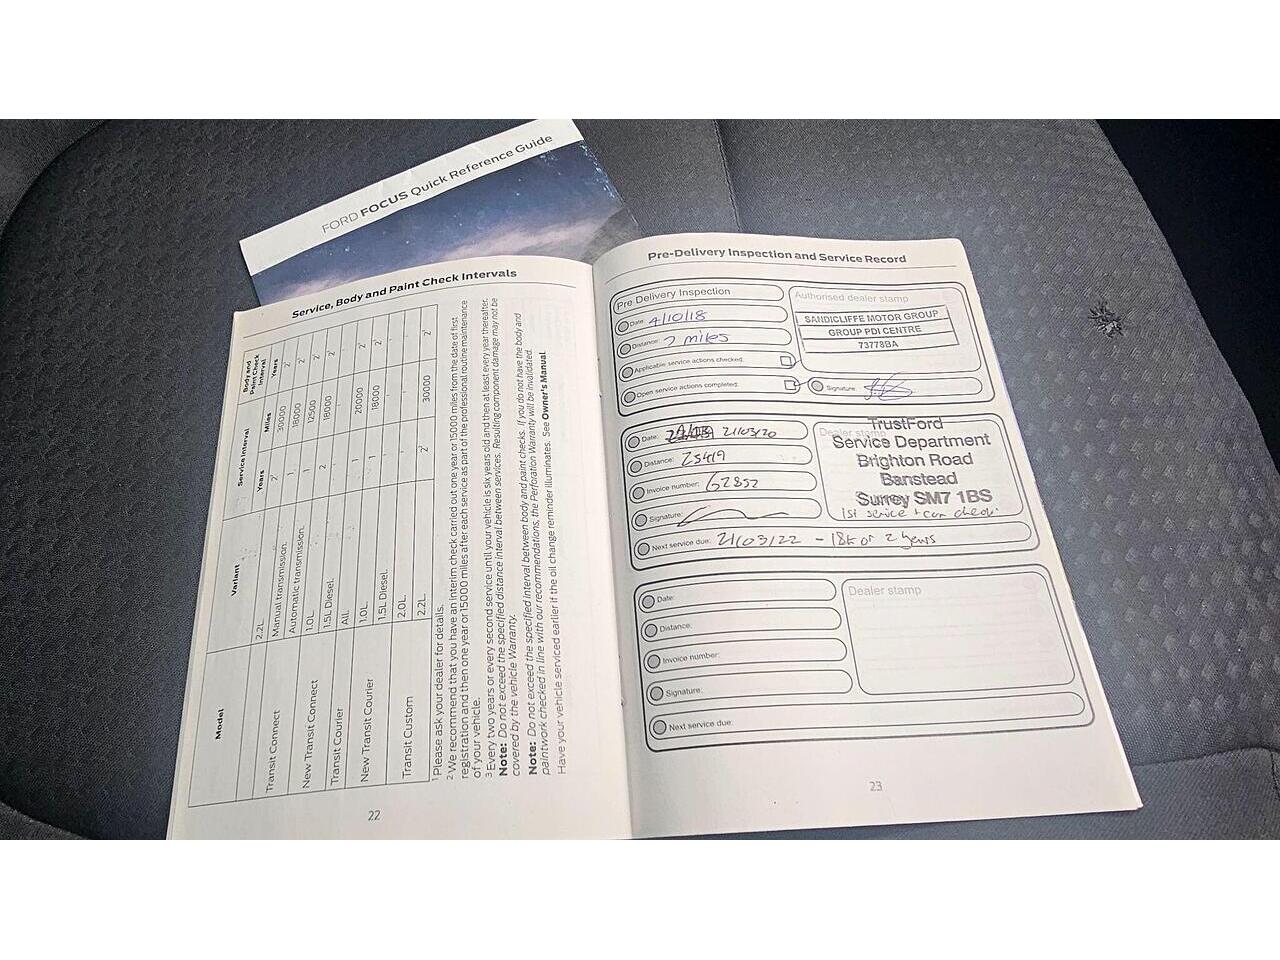 FORD FOCUS Quick Reference Guide
Service, Body and Paint Check Intervals
Model
Variant
Service Interval
Body and Paint Check Interval
Years
Miles
Years
2.2L.
Transit Connect
Manual transmission.
2¹
30000
2¹
Automatic transmission.
18000
New Transit Connect
1.0L.
1
12500
2¹
1.5L Diesel.
2
18000
2¹
Transit Courier
All.
New Transit Courier
1.0L.
1
20000
2¹
1.5L Diesel.
1
18000
2¹
Transit Custom
2.0L.
2.2L.
2¹
30000
2²
¹ Please ask your dealer for details.
² We recommend that you have an interim check carried out one year or 15000 miles from the date of first
registration and then one year or 15000 miles after each service as part of the professional routine maintenance
of your vehicle.
³ Every two years or every second service until your vehicle is six years old and then at least every year thereafter.
Note: Do not exceed the specified distance interval between services. Resulting component damage may not be
covered by the vehicle Warranty.
Note: Do not exceed the specified interval between body and paint checks. If you do not have the body and
paintwork checked in line with our recommendations, the Perforation Warranty will be invalidated.
Have your vehicle serviced earlier if the oil change reminder illuminates. See Owner's Manual.
22
Pre-Delivery Inspection and Service Record
Pre Delivery Inspection
Date: 4/10/18
Distance: 7 miles
Applicable service actions checked:
Open service actions completed:
Authorised dealer stamp
SANDICLIFFE MOTOR GROUP
GROUP PDI CENTRE
73778BA
Signature:
Date: 21/03/20
Distance: 25419
Invoice number: 62852
Signature:
Next service due: 21/03/22 - 18k or 2 years
Dealer stamp
TrustFord
Service Department
Brighton Road
Banstead
Surrey SM7 1BS
1st service + car check
Date:
Distance:
Invoice number:
Signature:
Next service due:
Dealer stamp
23